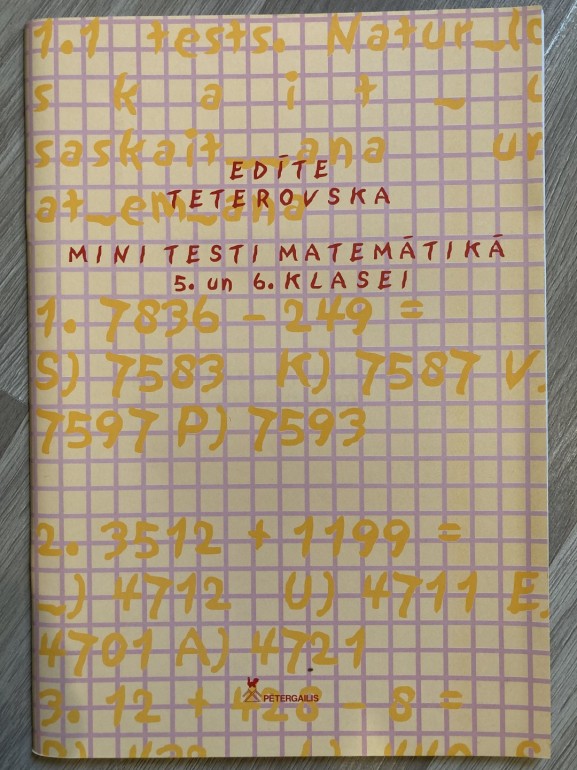 1.1 tests. Natur_lo
s k a i t _
saskait__ana un
EDĪTE
TETEROVSKA
at_em_ana
MINI TESTI MATEMĀTIKĀ
5. un 6. KLASEI
1. 7836 - 249 =
S) 7583 K) 7587 V)
7597 P) 7593
2. 3512 + 1199 =
_) 4712 U) 4711 E)
4701 A) 4721
PĒTERGAILIS
3. 12 + 428 - 8 =